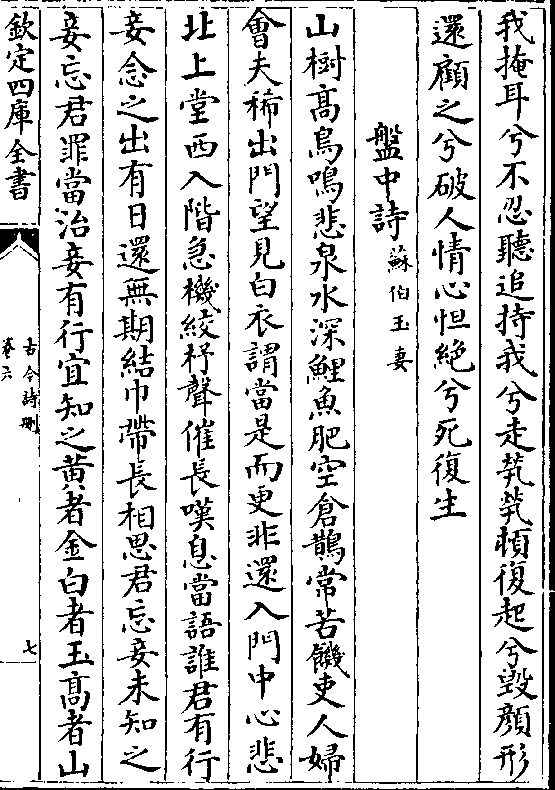 我掩耳兮不忍聽追持我兮走煢煢頓復起兮毁顏形
還顧之兮破人情心怛絶兮死復生
盤中詩蘇伯玉妻
山樹髙鳥鳴悲泉水深鯉魚肥空倉鵲常苦饑吏人婦
會夫稀出門望見白衣謂當是而更非還入門中心悲
北上堂西入階急機絞杼聲催長嘆息當語誰君有行
妾念之出有日還無期結巾帶長相思君忘妾未知之
妾忘君罪當治妾有行宜知之黄者金白者玉髙者山
欽定四庫全書
古今詩刪
卷六
七